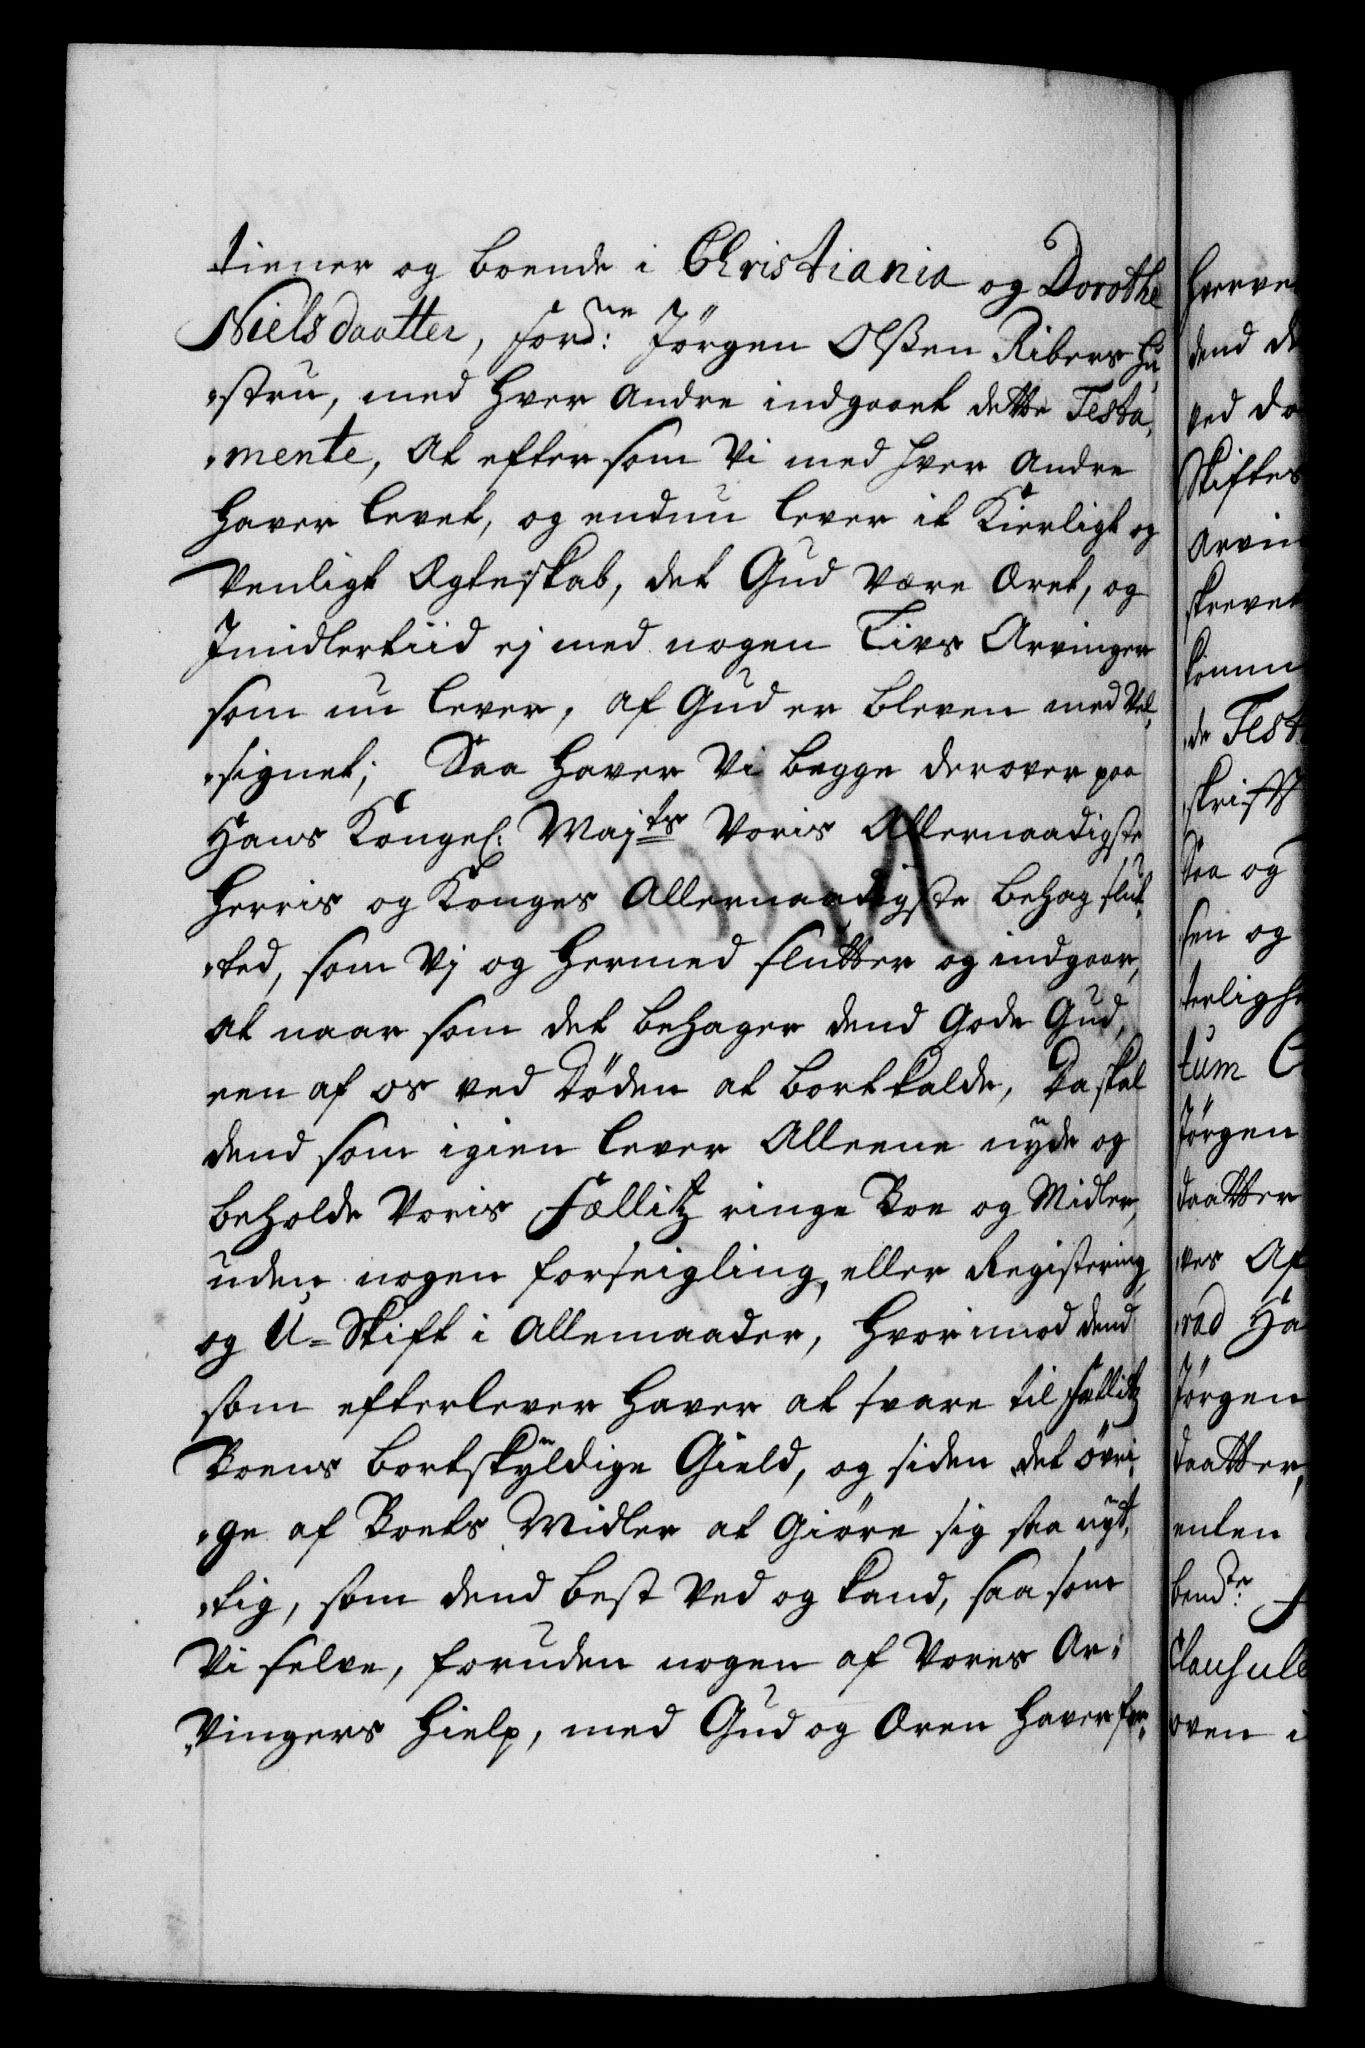 tiener og boende i Christiania og Dorothe
Nielsdaatter, for.ne Jörgen Olßen Ribers Hu,
,,stru, med hver andre indgaaet dette Testa,
,,mente, At eftersom Vi med hver andre
haver levet, og endnu lever it Kierligt og
Venligt Ægteskab, det Gud være Æret, og
Imidlertiid ej med nogen Livs Arvinger
som nu lever, af Gud er bleven med Vel,
,,signet; Saa haver Vi begge derover paa
Hans Kongel: Majts Voris Allernaadigste
Herris og Konges Allernaadigste behag slut,
,,ted, som Vj og hermed slutter og indgaar,
at naar som det behager dend Gode Gud,
een af os ved Döden at bortkalde, Da skal
dend som igien lever Alleene nyde og
beholde Voris Fællitz ringe Boe og Midler,
uden nogen forseigling, eller Registering,
og U-Skift i Allemaader, hvorimod dend
som efterlever haver at svare til Fællitz
Boens bortskyldige Gield, og siden det övri,
,,ge af Boets Midler at Giöre sig saa nyt,
,,tig, som dend best ved og kand, saasom
Vi selve, foruden nogen af Vores Ar,,
,,Vingers Hielp, med Gud og Æren haver for,,
hverve
dend de
ved do
Skiftes
Arvin
skrevet
komm
,,de Test
skrifft
Saa og
sen og
terlighe
tum C
Jörgen
daatter
ves Af
,,rad Ha
Jörgen
daatter,
enten
bemd.te
Clausule
oven i